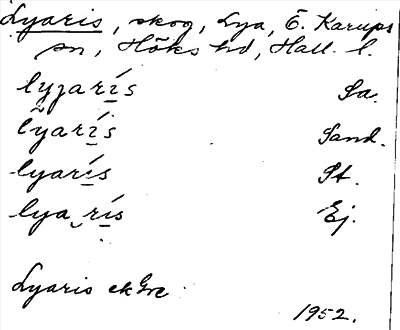 Lyaris, skog, Lya, Ö. Karups
sn, Höks hd, Hall. l.
lyjarís Sa.
lyarís Sand.
lyarís St.
lya rís Ej.
Lyaris ek
1952.